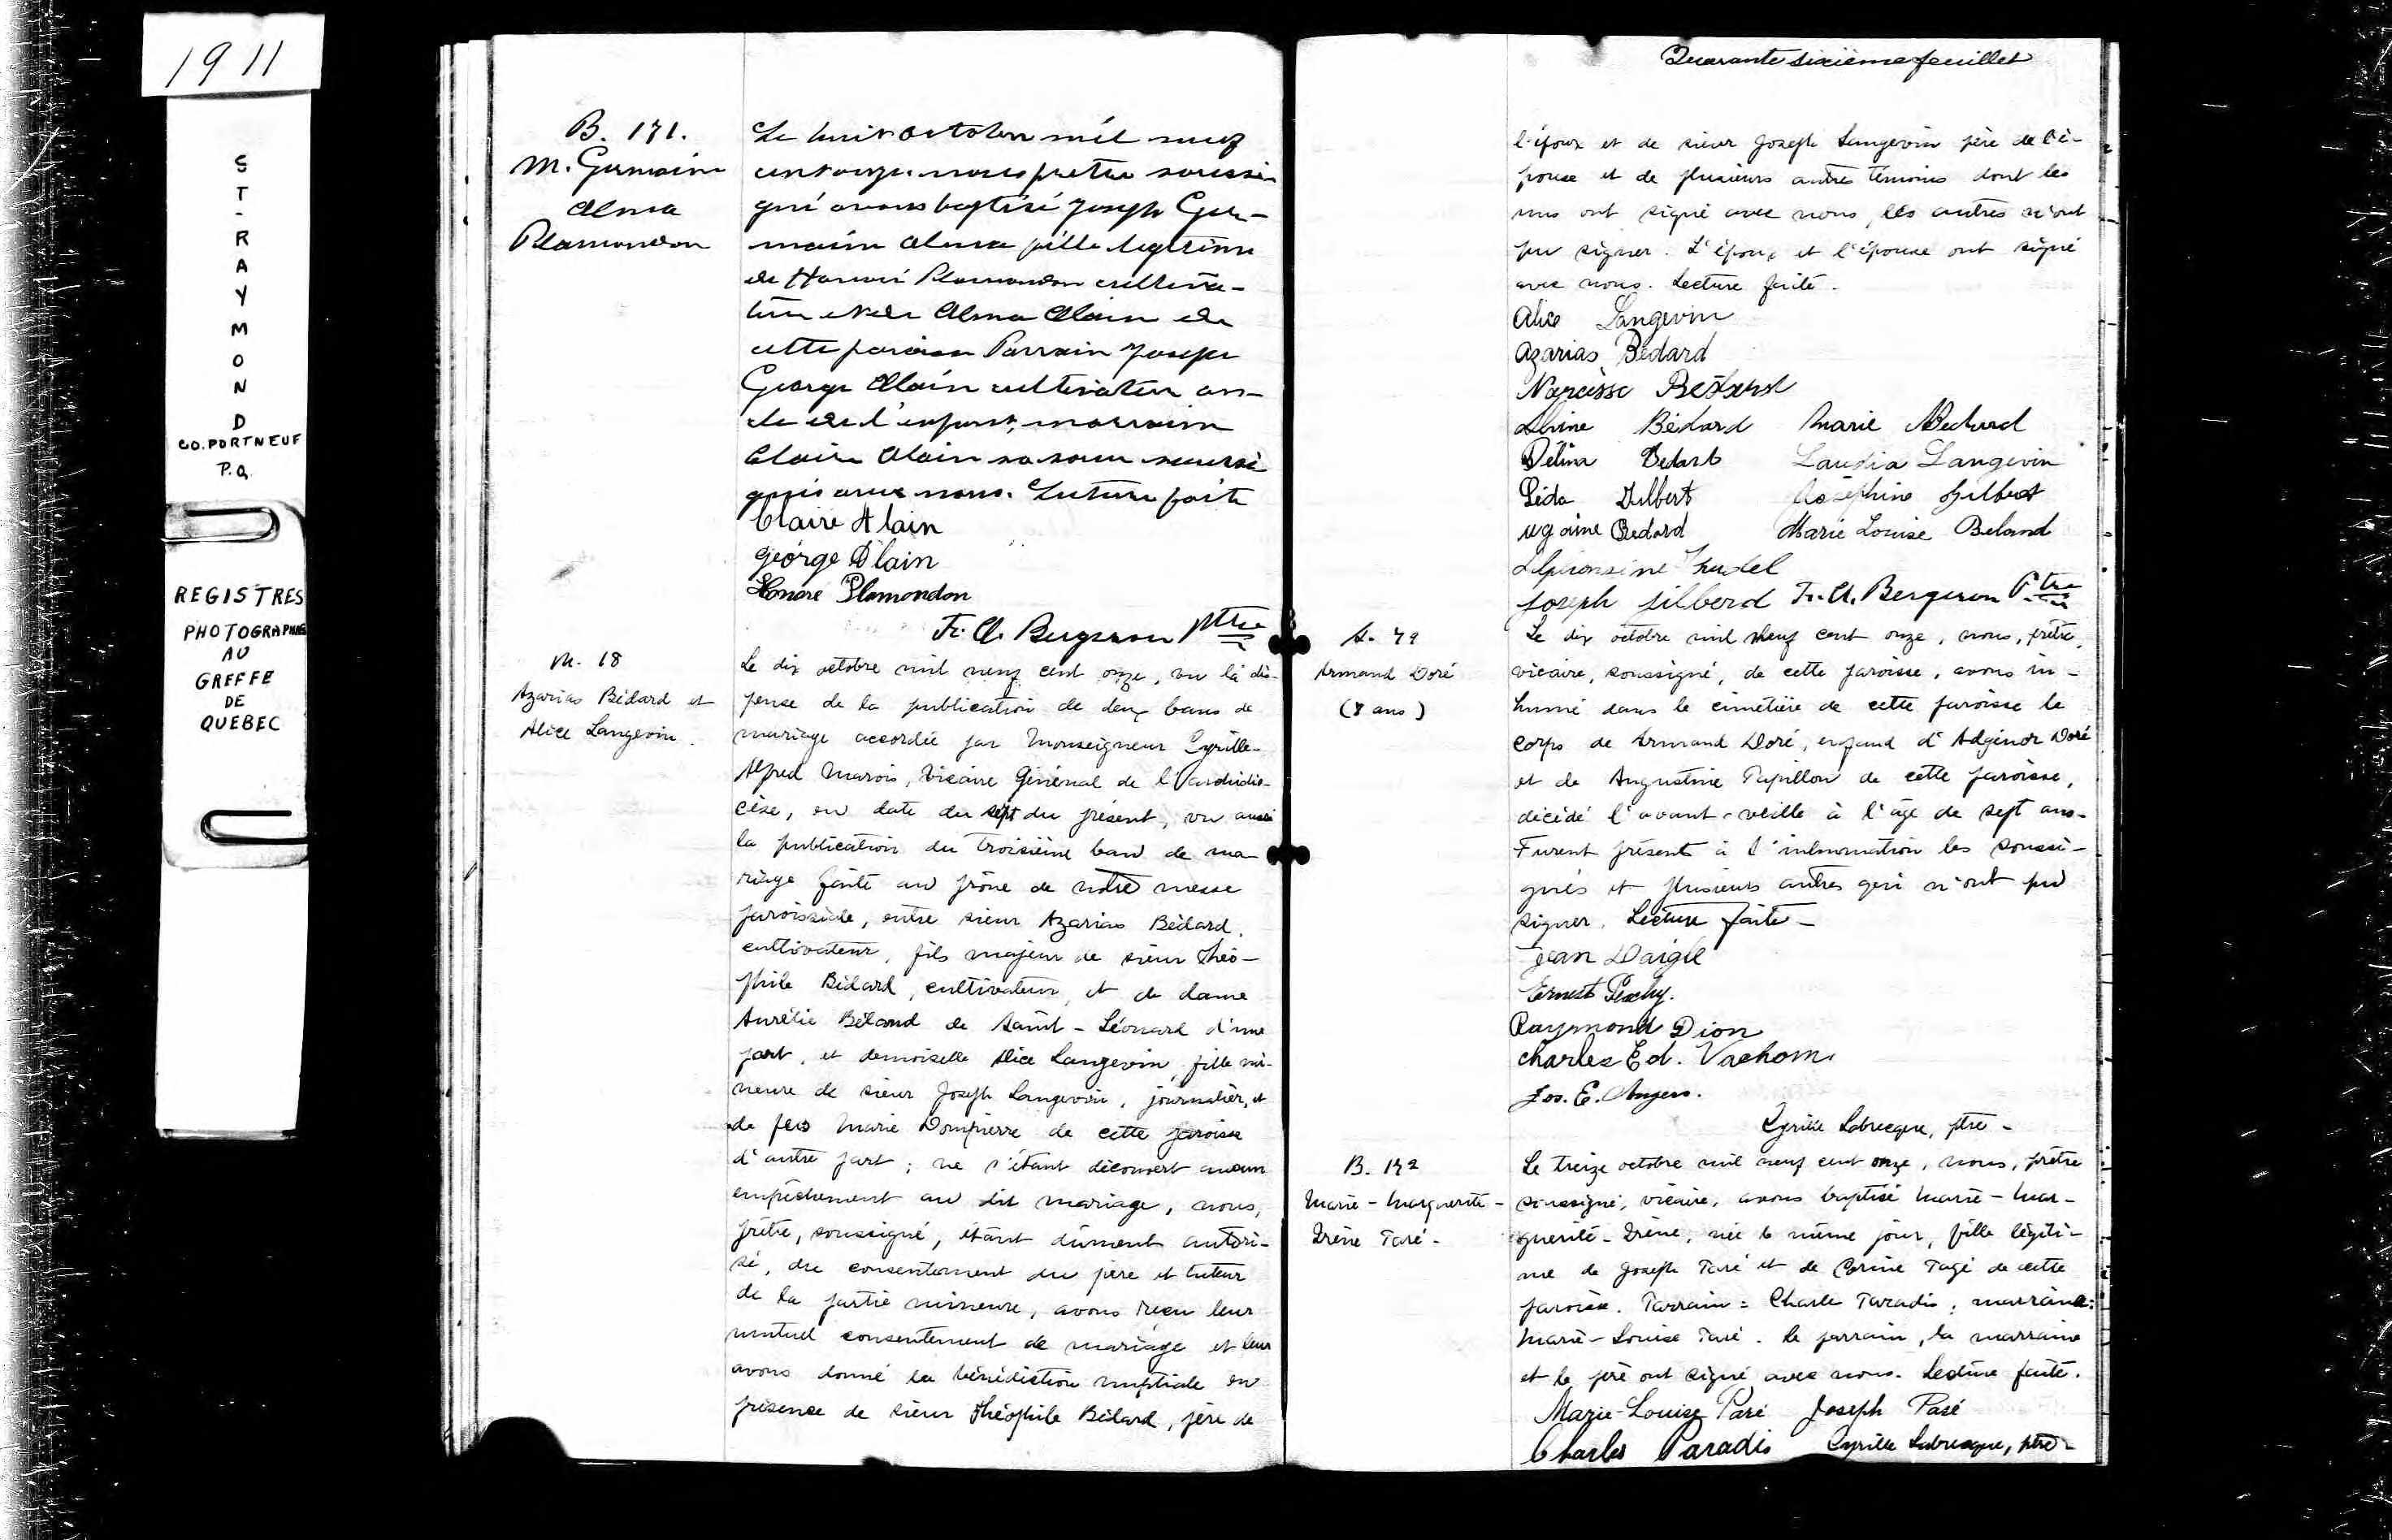 1911
ST-RAYMOND
CO. PORTNEUF
P.Q.
REGISTRES
PHOTOGRAPHIÉS
AU
GREFFE
DE
QUEBEC
B. 171.
M. Germaine
Alma
Plamondon
Le huit octobre mil neuf
cent onze nous pretre soussi-
gné avons baptisé Joseph Ger-
maine Alma fille legitime
de Honoré Plamondon cultiva-
teur et de Alma Alain de
cette paroisse Parrain Joseph
George Alain cultivateur on-
cle de l'enfant, marraine
Claire Alain sa soeur soussi
gnés avec nous. Lecture faite
Claire Alain
George Alain
Honoré Plamondon
Fr. A. Bergeron Ptre
M. 18
Azarias Bédard et
Alice Langevin.
Le dix octobre mil neuf cent onze, vu la dis-
pense de la publication de deux bans de
mariage accordée par Monseigneur Cyrille-
Alfred Marois, Vicaire Général de l'Archidio-
cèse, en date du sept du présent, vu aussi
la publication du troisième ban de ma-
riage faite au prône de notre messe
paroissiale, entre sieur Azarias Bédard,
cultivateur, fils majeur de sieur Théo-
phile Bédard, cultivateur, et de dame
Aurélie Béland de Saint-Léonard d'une
part, et demoiselle Alice Langevin, fille mi-
neure de sieur Joseph Langevin, journalier, et
de feu Marie Dompierre de cette paroisse
d'autre part; ne s'étant découvert aucun
empêchement au dit mariage, nous,
prêtre, soussigné, étant dûment autori-
sé, du consentement du père et tuteur
de la partie mineure, avons reçu leur
mutuel consentement de mariage et leur
avons donné la bénédiction nuptiale en
présence de sieur Théophile Bédard, père de
Quarante sixième feuillet
l'époux et de sieur Joseph Langevin père de l'é-
pouse et de plusieurs autres témoins dont les
uns ont signé avec nous, les autres n'ont
pu signer. L'époux et l'épouse ont signé
avec nous. Lecture faite.
Alice Langevin
Azarias Bédard
Narcisse Bédard
Bédard Marie Bedard
Délina Bedart Laudia Langevin
Léda Gilbert Joséphine Gilbert
Bedard Marie Louise Beland
Alphonsine Trudel
Joseph Jilberd Fr. A. Bergeron Ptre
S. 79
Armand Doré
(7 ans)
Le dix octobre mil neuf cent onze, nous, prêtre,
vicaire, soussigné, de cette paroisse, avons in-
humé dans le cimetière de cette paroisse le
corps de Armand Doré, enfant d'Adgénor Doré
et de Augustine Papillon de cette paroisse,
décédé l'avant-veille à l'âge de sept ans.
Furent présents à l'inhumation les soussi-
gnés et plusieurs autres qui n'ont pu
signer. Lecture faite -
Jean Daigle
Ernest Plichy.
Raymond Dion
Charles Ed. Vachon.
Jos. E. Angers.
Cyrille Labrecque, ptre -
B. 172
Marie-Marguerite-
Irène Paré -
Le treize octobre mil neuf cent onze, nous, prêtre
soussigné, vicaire, avons baptisé Marie-Mar-
guerite-Irène, née le même jour, fille légiti-
me de Joseph Paré et de Corine Pagé de cette
paroisse. Parrain: Charle Paradis; marraine:
Marie-Louise Paré. Le parrain, la marraine
et le père ont signé avec nous. Lecture faite.
Marie-Louise Paré Joseph Paré
Charles Paradis Cyrille Labrecque, ptre -